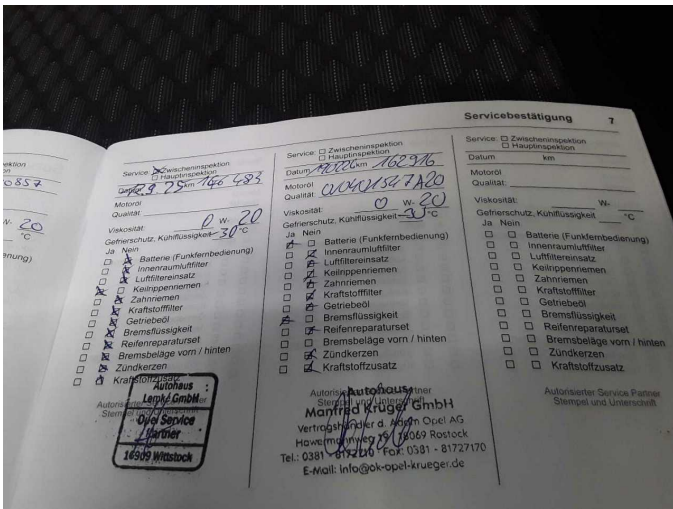 Servicebestätigung 7
ektion
n
0857
W- 20
°C
enung)
Service: Zwischeninspektion
Hauptinspektion
Datum km 146 483
Motoröl
Qualität:
Viskosität: 0 W- 20
Gefrierschutz, Kühlflüssigkeit -30 °C
Ja Nein
Batterie (Funkfernbedienung)
Innenraumluftfilter
Luftfiltereinsatz
Keilrippenriemen
Zahnriemen
Kraftstofffilter
Getriebeöl
Bremsflüssigkeit
Reifenreparaturset
Bremsbeläge vorn / hinten
Zündkerzen
Kraftstoffzusatz
Autorisierter Service Partner
Stempel und Unterschrift
Autohaus
Lemke GmbH
Opel Service
Partner
16909 Wittstock
Service: Zwischeninspektion
Hauptinspektion
Datum km 162916
Motoröl
Qualität:
Viskosität: 0 W- 20
Gefrierschutz, Kühlflüssigkeit -30 °C
Ja Nein
Batterie (Funkfernbedienung)
Innenraumluftfilter
Luftfiltereinsatz
Keilrippenriemen
Zahnriemen
Kraftstofffilter
Getriebeöl
Bremsflüssigkeit
Reifenreparaturset
Bremsbeläge vorn / hinten
Zündkerzen
Kraftstoffzusatz
Stempel und Unterschrift
Autohaus
Manfred Krüger GmbH
Vertragshändler d. Adam Opel AG
18069 Rostock
Tel.: 0381 - Fax: 0381 - 81727170
E-Mail: info@ok-opel-krueger.de
Service: Zwischeninspektion
Hauptinspektion
Datum km
Motoröl
Qualität:
Viskosität: W-
Gefrierschutz, Kühlflüssigkeit °C
Ja Nein
Batterie (Funkfernbedienung)
Innenraumluftfilter
Luftfiltereinsatz
Keilrippenriemen
Zahnriemen
Kraftstofffilter
Getriebeöl
Bremsflüssigkeit
Reifenreparaturset
Bremsbeläge vorn / hinten
Zündkerzen
Kraftstoffzusatz
Autorisierter Service Partner
Stempel und Unterschrift